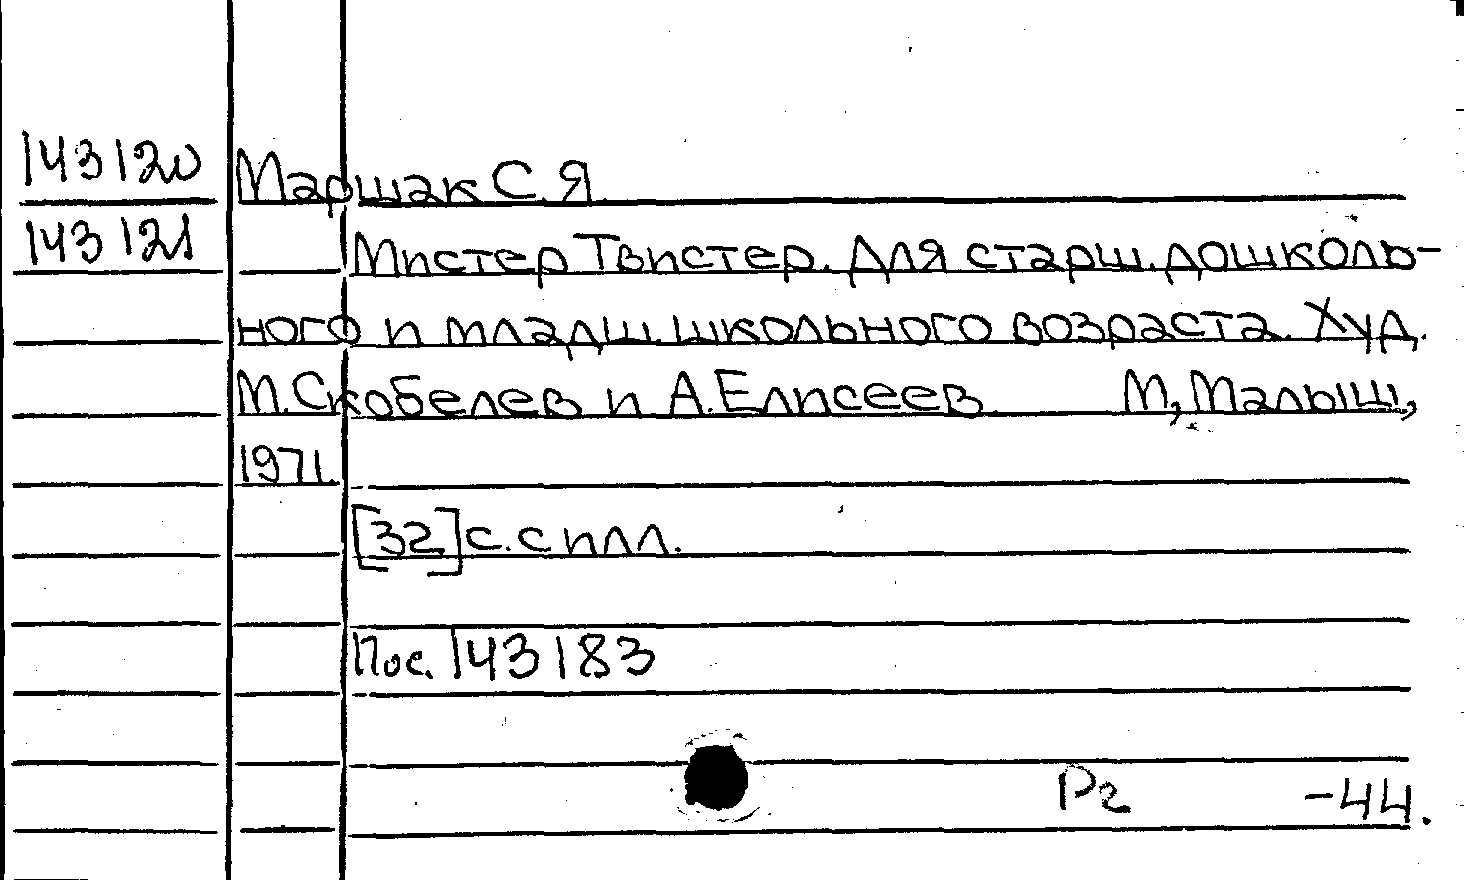 143120 Маршак С.Я.
143121 Мистер Твистер. Для старш. дошколь-
ного и младш. школьного возраста. Худ.
М. Скобелев и А. Елисеев М, Малыш,
1971.
[32] с. с илл.
Пос. 143183
Р2 -44.